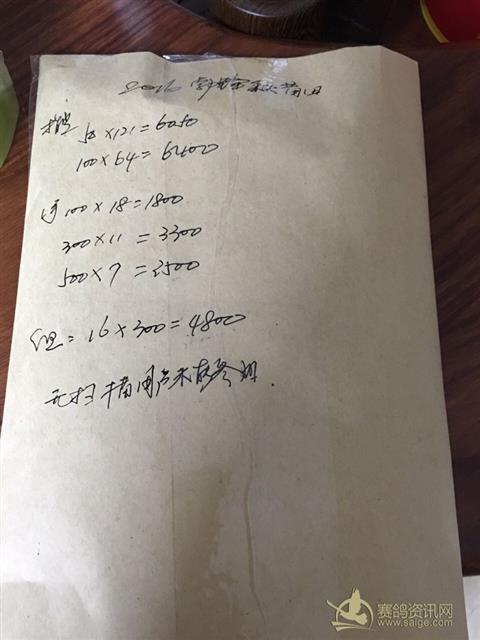 2016
50×121=6050
100×64=6400
100×18=1800
300×11=3300
500×7=3500
组=16×300=4800
无扫描用户未能参组.
赛鸽资讯网
www.saige.com